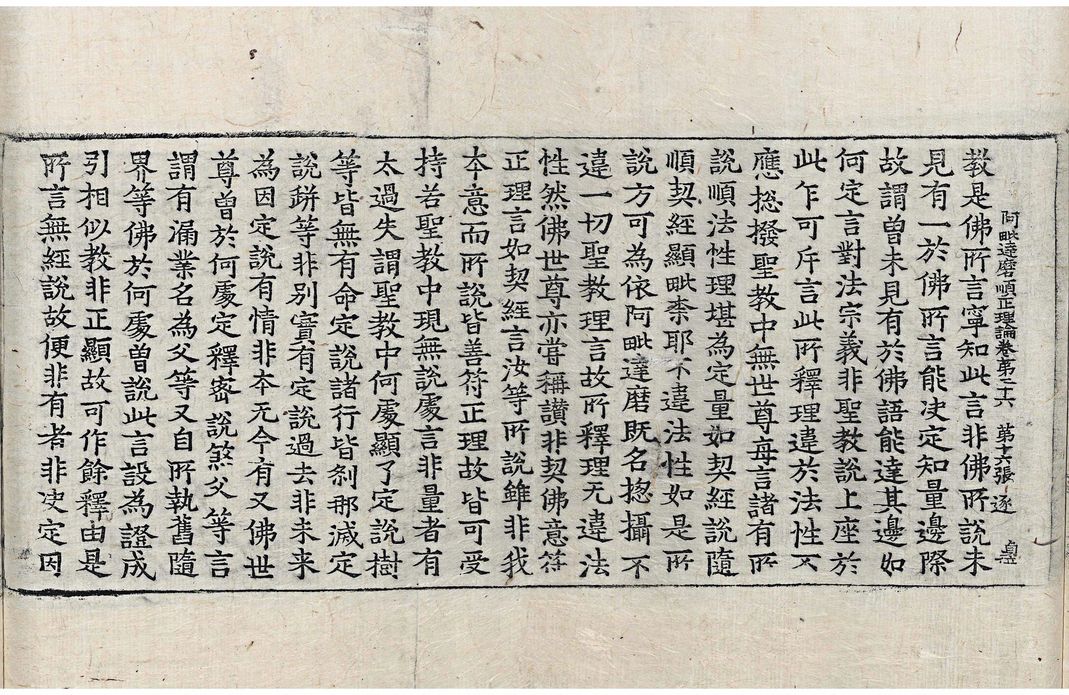 阿毗達磨順正理論卷第二十六 第十六張 逐
教是佛所言寧知此言非佛所說未
見有一於佛所言能決定知量邊際
故謂曾未見有於佛語能達其邊如
何定言對法宗義非聖教說上座於
此乍可斥言此所釋理違於法性不
應捴撥聖教中無世尊每言諸有所
說順法性理堪為定量如契經說隨
順契經顯毗柰耶不違法性如是所
說方可為依阿毗達磨既名捴攝不
違一切聖教理言故所釋理无違法
性然佛世尊亦嘗稱讚非契佛意符
正理言如契經言汝等所說雖非我
本意而所說皆善符正理故皆可受
持若聖教中現無說處言非量者有
太過失謂聖教中何處顯了定說樹
等皆無有命定說諸行皆剎那滅定
說缾等非別實有定說過去非未来
為因定說有情非本无今有又佛世
尊曾於何處定釋密說煞父等言
謂有漏業名為父等又自所執舊隨
界等佛於何處曾說此言設為證成
引相似教非正顯故可作餘釋由是
所言無經說故便非有者非決定因